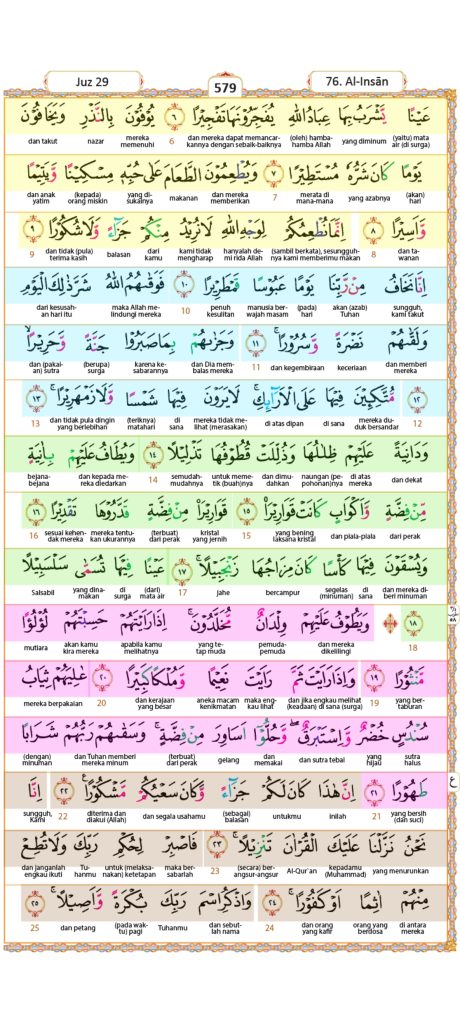 Juz 29
579
76. Al-Insān
عَيْنًا يَّشْرَبُ بِهَا عِبَادُ اللّٰهِ يُفَجِّرُوْنَهَا تَفْجِيْرًا ٦ يُوْفُوْنَ بِالنَّذْرِ وَيَخَافُوْنَ
(yaitu) mata air (di surga) yang diminum (oleh) hamba-hamba Allah dan mereka dapat memancarkannya dengan sebaik-baiknya 6 mereka memenuhi nazar dan takut
يَوْمًا كَانَ شَرُّهٗ مُسْتَطِيْرًا ٧ وَيُطْعِمُوْنَ الطَّعَامَ عَلٰى حُبِّهٖ مِسْكِيْنًا وَّيَتِيْمًا
(akan) hari yang azabnya merata di mana-mana 7 dan mereka memberikan makanan yang disukainya (kepada) orang miskin dan anak yatim
وَّاَسِيْرًا ٨ اِنَّمَا نُطْعِمُكُمْ لِوَجْهِ اللّٰهِ لَا نُرِيْدُ مِنْكُمْ جَزَاۤءً وَّلَا شُكُوْرًا ٩
dan tawanan 8 (sambil berkata), sesungguhnya kami memberimu makan hanyalah demi rida Allah kami tidak mengharap dari kamu balasan dan tidak (pula) terima kasih 9
اِنَّا نَخَافُ مِنْ رَّبِّنَا يَوْمًا عَبُوْسًا قَمْطَرِيْرًا ١٠ فَوَقٰىهُمُ اللّٰهُ شَرَّ ذٰلِكَ الْيَوْمِ
sungguh, kami takut akan (azab) Tuhan (pada) hari manusia berwajah masam penuh kesulitan 10 maka Allah melindungi mereka dari kesusahan hari itu
وَلَقّٰىهُمْ نَضْرَةً وَّسُرُوْرًاۚ ١١ وَجَزٰىهُمْ بِمَا صَبَرُوْا جَنَّةً وَّحَرِيْرًاۙ
dan memberi mereka keceriaan dan kegembiraan 11 dan Dia membalas mereka karena kesabarannya (berupa) surga dan (pakaian) sutra
١٢ مُّتَّكِـِٕيْنَ فِيْهَا عَلَى الْاَرَاۤىِٕكِۚ لَا يَرَوْنَ فِيْهَا شَمْسًا وَّلَا زَمْهَرِيْرًاۚ ١٣
12 mereka duduk bersandar di sana di atas dipan mereka tidak melihat (merasakan) di sana (teriknya) matahari dan tidak pula dingin yang berlebihan 13
وَدَانِيَةً عَلَيْهِمْ ظِلٰلُهَا وَذُلِّلَتْ قُطُوْفُهَا تَذْلِيْلًا ١٤ وَيُطَافُ عَلَيْهِمْ بِاٰنِيَةٍ
dan dekat di atas mereka naungan (pepohonan)nya dan dimudahkan untuk memetik (buah)nya semudah-mudahnya 14 dan kepada mereka diedarkan bejana-bejana
مِّنْ فِضَّةٍ وَّاَكْوَابٍ كَانَتْ قَوَارِيْرَا۠ ١٥ قَوَارِيْرَا۟ مِنْ فِضَّةٍ قَدَّرُوْهَا تَقْدِيْرًا ١٦
dari perak dan piala-piala yang bening laksana kristal 15 kristal yang jernih (terbuat) dari perak mereka tentukan ukurannya sesuai kehendak mereka 16
وَيُسْقَوْنَ فِيْهَا كَأْسًا كَانَ مِزَاجُهَا زَنْجَبِيْلًاۚ ١٧ عَيْنًا فِيْهَا تُسَمّٰى سَلْسَبِيْلًا
dan mereka diberi minuman di sana segelas (minuman) bercampur jahe 17 (dari) mata air di surga yang dinamakan Salsabil
١٨ وَيَطُوْفُ عَلَيْهِمْ وِلْدَانٌ مُّخَلَّدُوْنَۚ اِذَا رَاَيْتَهُمْ حَسِبْتَهُمْ لُؤْلُؤًا
18 dan mereka dikelilingi pemuda-pemuda yang tetap muda apabila kamu melihatnya akan kamu kira mereka mutiara
مَّنْثُوْرًا ١٩ وَاِذَا رَاَيْتَ ثَمَّ رَاَيْتَ نَعِيْمًا وَّمُلْكًا كَبِيْرًا ٢٠ عٰلِيَهُمْ ثِيَابُ
yang bertaburan 19 dan jika engkau melihat (keadaan) di sana (surga) maka engkau lihat aneka macam kenikmatan dan kerajaan yang besar 20 mereka berpakaian
سُنْدُسٍ خُضْرٌ وَّاِسْتَبْرَقٌۖ وَّحُلُّوْٓا اَسَاوِرَ مِنْ فِضَّةٍۚ وَسَقٰىهُمْ رَبُّهُمْ شَرَابًا
sutra halus yang hijau dan sutra tebal dan memakai gelang (terbuat) dari perak dan Tuhan memberi mereka minum (dengan) minuman
طَهُوْرًا ٢١ اِنَّ هٰذَا كَانَ لَكُمْ جَزَاۤءً وَّكَانَ سَعْيُكُمْ مَّشْكُوْرًا ٢٢ اِنَّا
yang bersih (dan suci) 21 inilah untukmu (sebagai) balasan dan segala usahamu diterima dan diakui (Allah) 22 sungguh, Kami
ع
نَحْنُ نَزَّلْنَا عَلَيْكَ الْقُرْاٰنَ تَنْزِيْلًاۚ ٢٣ فَاصْبِرْ لِحُكْمِ رَبِّكَ وَلَا تُطِعْ
yang menurunkan kepadamu (Muhammad) Al-Qur'an (secara) berangsur-angsur 23 maka bersabarlah untuk (melaksanakan) ketetapan Tuhanmu dan janganlah engkau ikuti
مِنْهُمْ اٰثِمًا اَوْ كَفُوْرًاۚ ٢٤ وَاذْكُرِ اسْمَ رَبِّكَ بُكْرَةً وَّاَصِيْلًاۚ ٢٥
di antara mereka orang yang berdosa dan orang yang kafir 24 dan sebutlah nama Tuhanmu (pada waktu) pagi dan petang 25